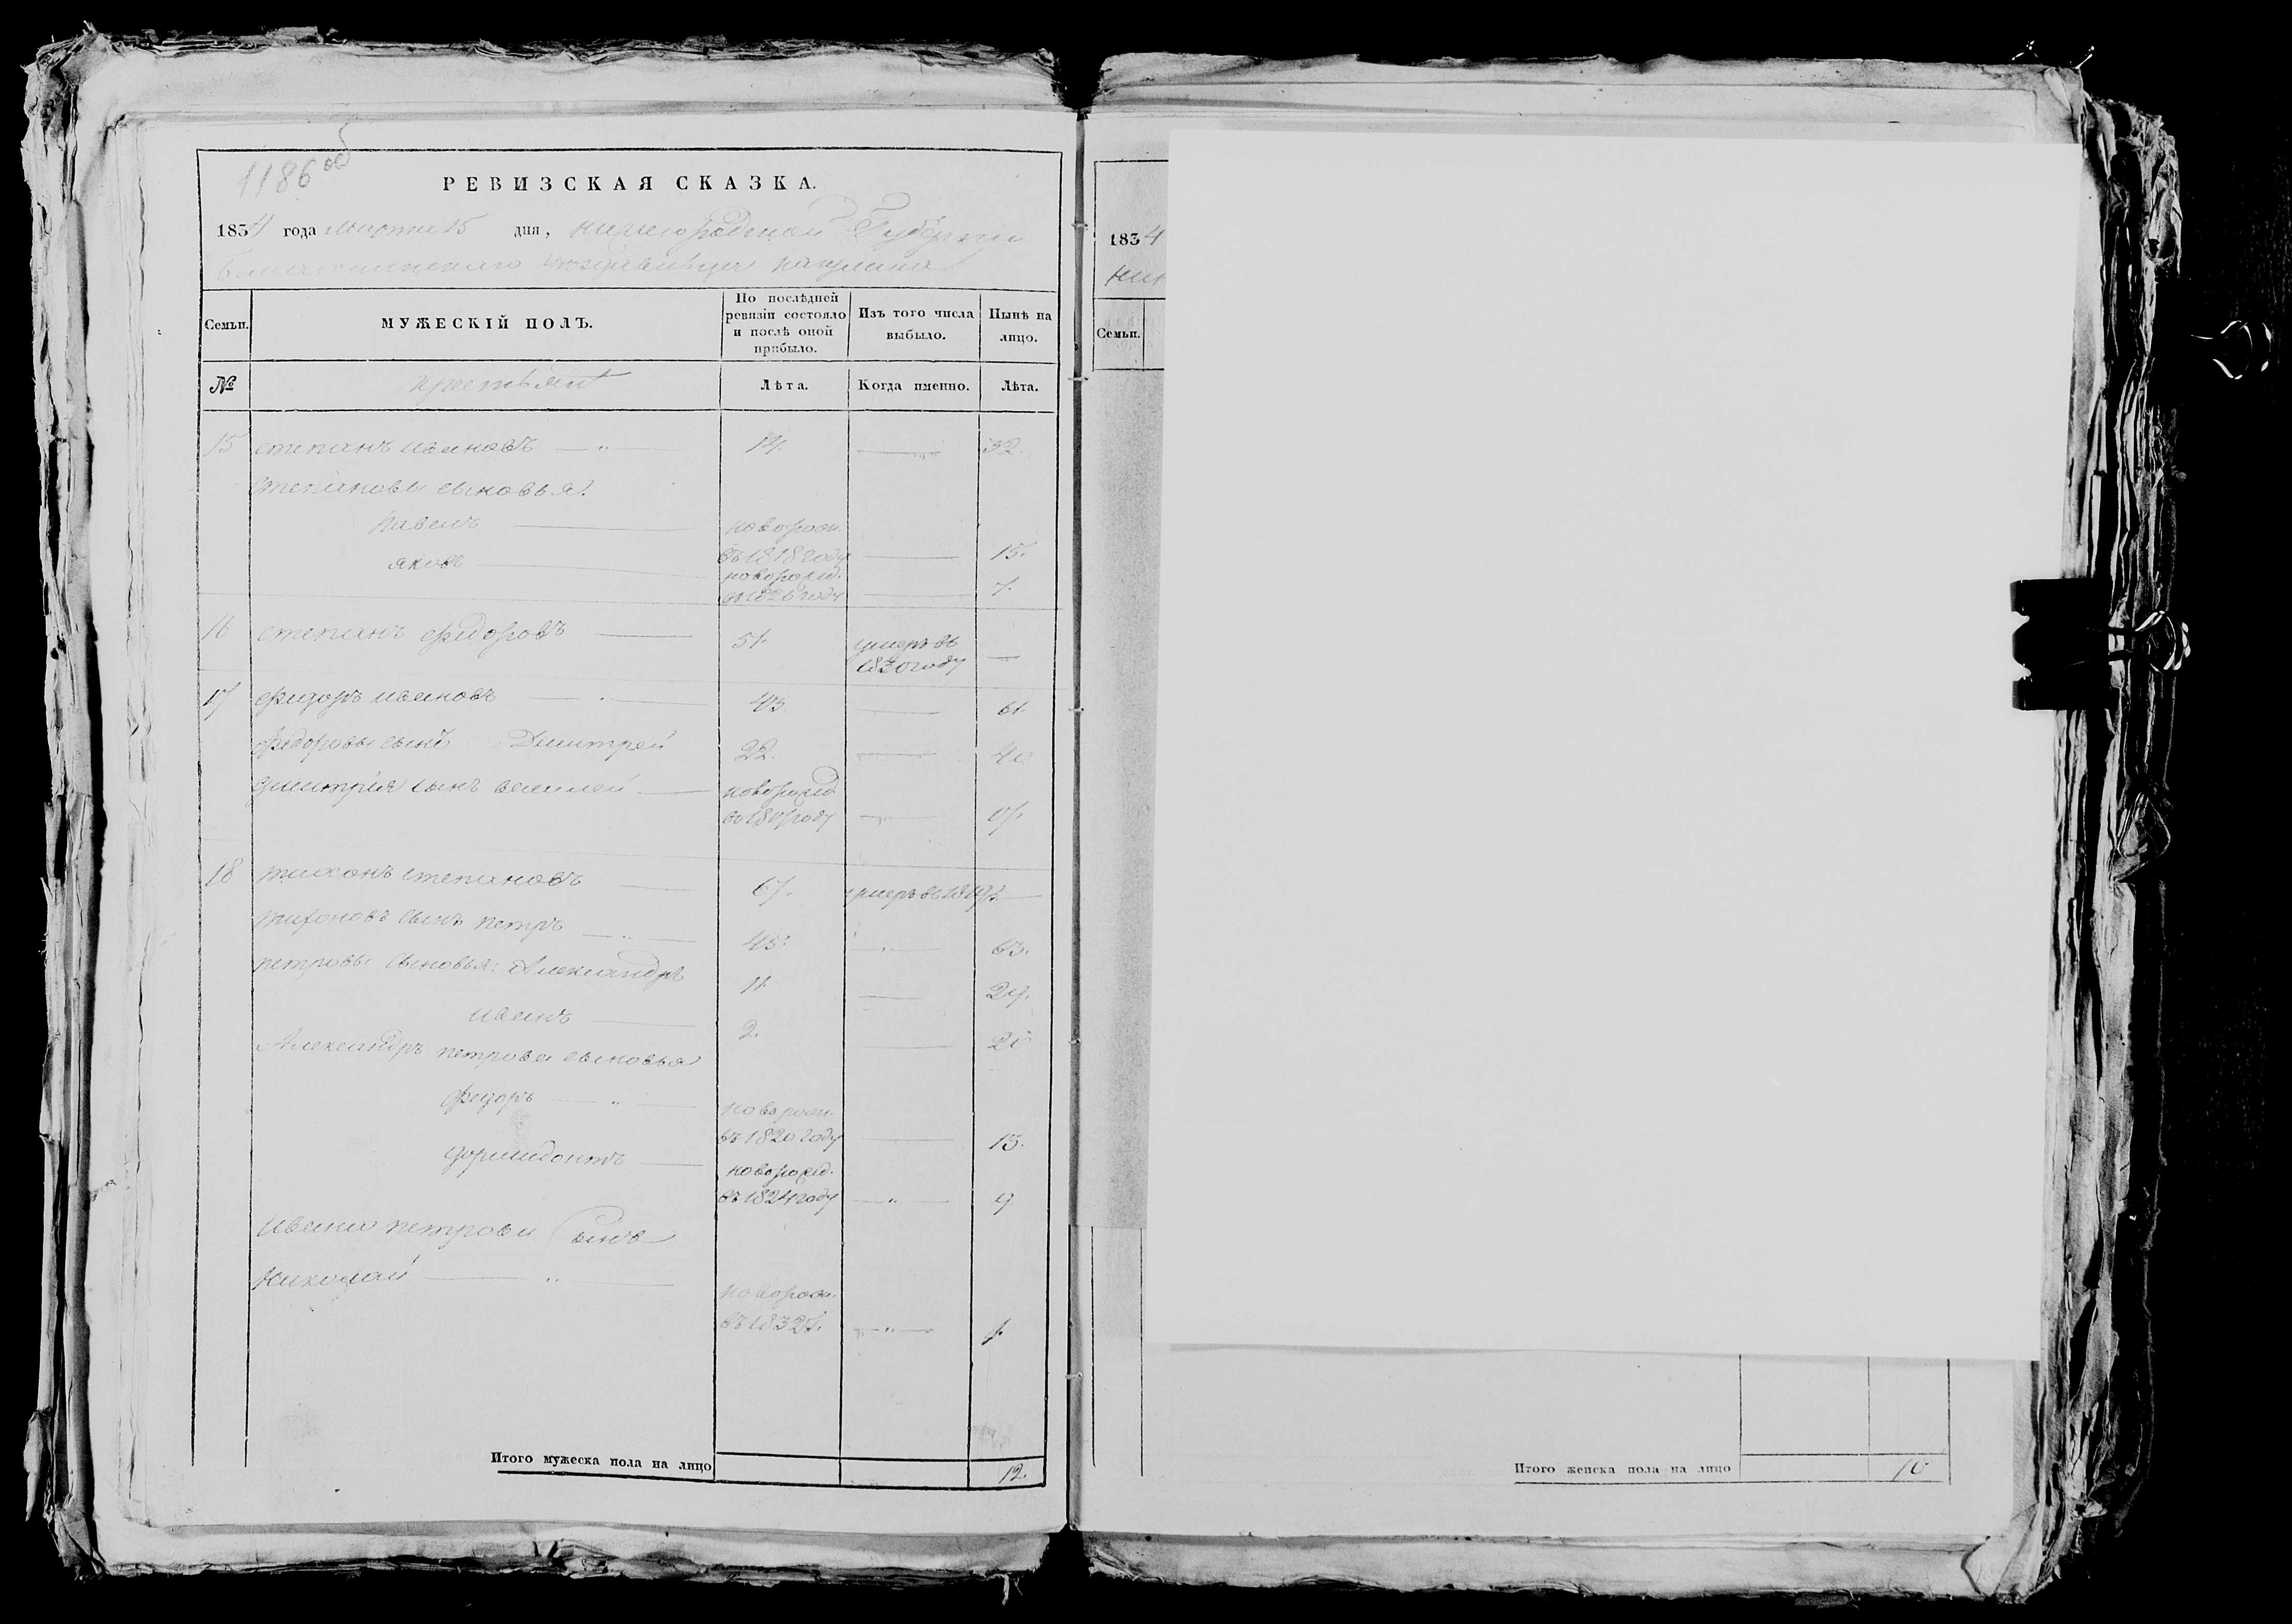 1186 об
РЕВИЗСКАЯ СКАЗКА.
1834 года Марта 15 дня, Нижегородской Губернии
Семьи.
МУЖЕСКІЙ ПОЛЪ.
По послѣдней ревизіи состояло и послѣ оной прибыло.
Изъ того числа выбыло.
Нынѣ на лицо.
№
крестьянъ
Лѣта.
Когда именно.
Лѣта.
15 степанъ ивановъ 14. 32.
степановы сыновья.
павелъ новорож.
въ 1818 году 15.
яковъ новорожд.
въ 1826 году 7.
16 степанъ федоровъ 51. умеръ въ
1830 году
17 федоръ ивановъ 43 61.
федоровъ сынъ Дмитрей 22. 40
дмитрія сынъ василей новорожд
году 17.
18 тихонъ степановъ 67. умеръ въ
тихоновъ сынъ петръ 45. 63.
петровы сыновья: Александръ 11 29.
иванъ 2. 20
Александръ петрова сыновья
федоръ новорож.
въ 1820 году 13.
дормидонтъ новорожд.
въ 1824 году 9
ивана петрова Сынъ
николай новорож.
въ 1832 г. 1.
Итого мужеска пола на лицо 12.
1834
ни
Семьи.
Итого женска пола на лицо 10